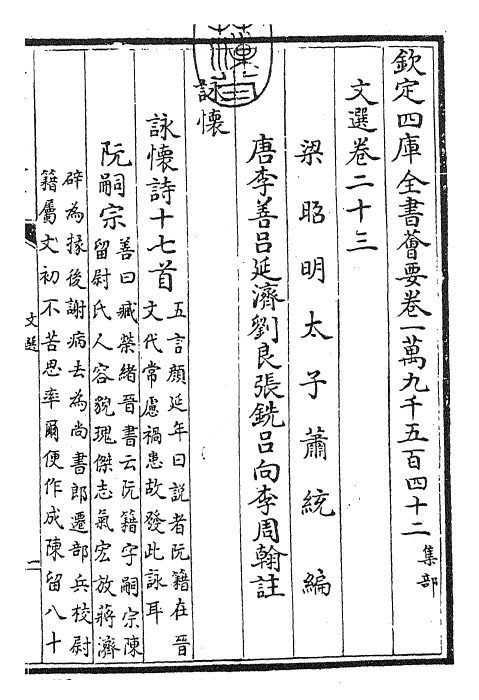 欽定四庫全書薈要卷一萬九千五百四十二 集部
文選卷二十三
梁昭明太子蕭統編
唐李善呂延濟劉良張銑呂向李周翰註
詠懷
詠懷詩十七首 五言顏延年曰說者阮籍在晉
文代常慮禍患故發此詠耳
阮嗣宗 善曰臧榮緒晉書云阮籍字嗣宗陳
留尉氏人容貌瑰傑志氣宏放蔣濟
辟為掾後謝病去為尚書郎遷部兵校尉
籍屬文初不苦思率爾便作成陳留八十
文選